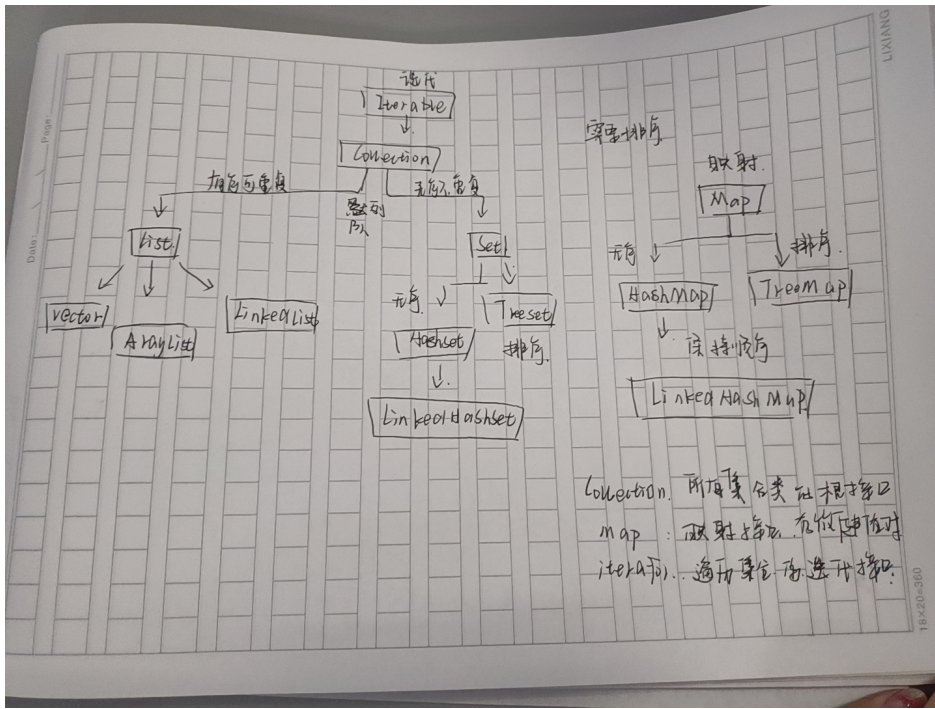 LIXIANG
Page:
Date:
迭代
Iterable
Collection
有序可重复
队列
无序不重复
List
Vector
ArayList
LinkedList
Set
无序
Hashset
Treeset
排序.
LinkedHashset
需要排序
映射.
Map
无序
排序.
HashMap
TreeMap
顺序
LinkedHashMap
Collection. 所有集合类的根接口
map : 映射接口. 存放键值对
iterator. 遍历集合 的迭代接口.
18X20=360